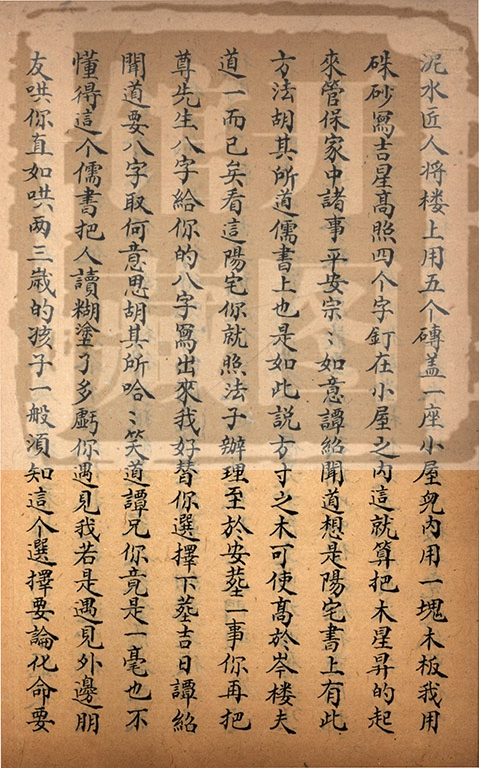 泥水匠人将楼上用五个磚盖一座小屋皃内用一塊木板我用
硃砂寫吉星髙照四个字釘在小屋之内這就算把木星昇的起
來管保家中諸事平安宗〻如意譚紹聞道想是陽宅書上有此
方法胡其所道儒書上也是如此説方寸之木可使髙於岑楼夫
道一而已矣看這陽宅你就照法子辦理至於安塟一事你再把
尊先生八字給你的八字寫出來我好替你選擇下塟吉日譚紹
聞道要八字取何意思胡其所哈〻笑道譚兄你竟是一毫也不
懂得這个儒書把人讀糊塗了多虧你遇見我若是遇見外邊朋
友哄你直如哄两三嵗的孩子一般湏知這个選擇要論化命要